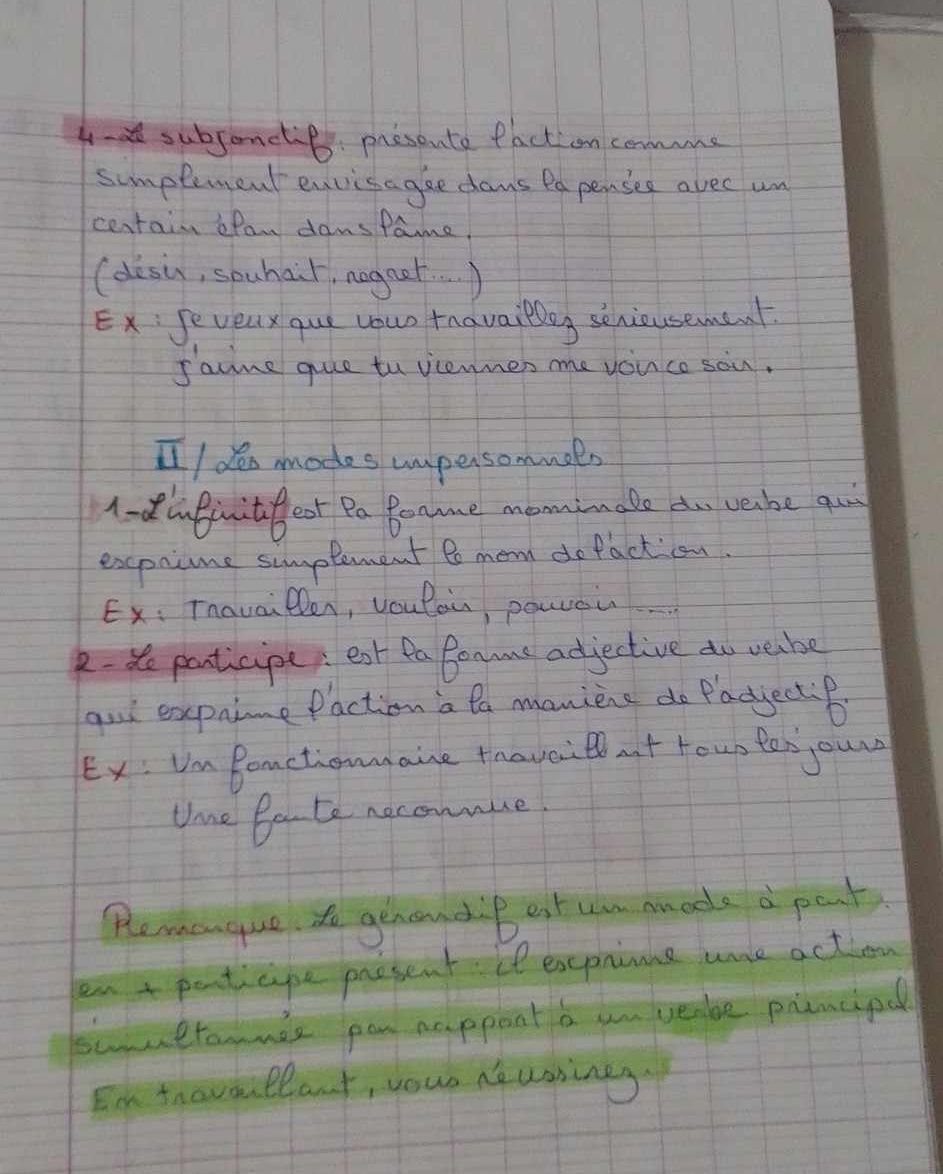 4-Le subjonctif: présente l'action comme
simplement envisagée dans la pensée avec un
certain élan dans l'âme.
(désir, souhait, regret....)
Ex: Je veux que vous travaillez sérieusement.
J'aime que tu viennes me voir ce soir.
II/ Les modes impersonnels
1-L'infinitif est la forme nominale du verbe qui
exprime simplement le nom de l'action.
Ex: Travailler, vouloir, pouvoir.....
2- Le participe: est la forme adjective du verbe
qui exprime l'action à la manière de l'adjectif.
Ex: Un fonctionnaire travaillant tous les jours
Une faute reconnue.
Remarque. Le gérondif est un mode à part.
en + participe présent: il exprime une action
simultannée par rapport à un verbe principal
En travaillant, vous réussirez.